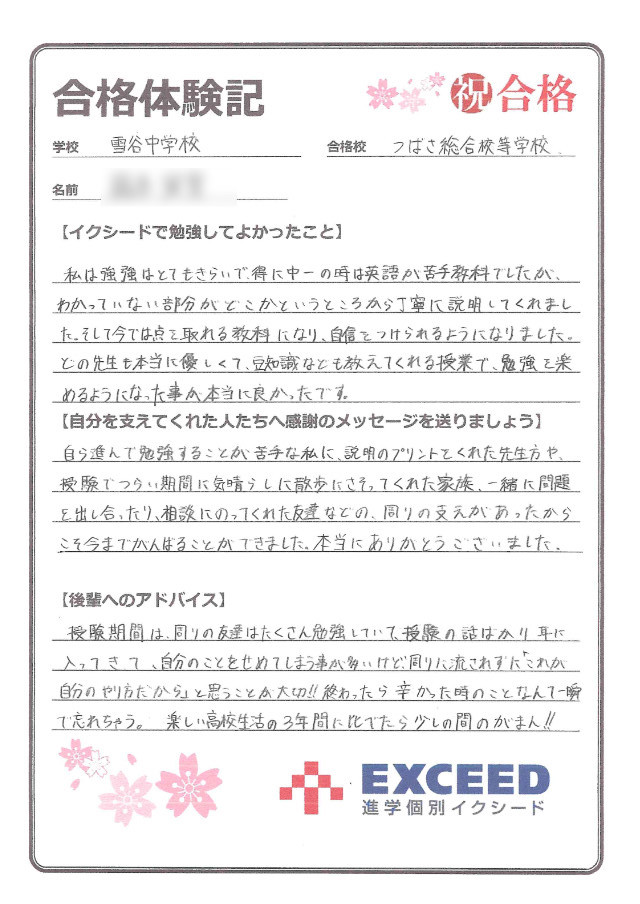 合格体験記
祝 合格
学校 雪谷中学校 合格校 つばさ総合校等学校
名前
【イクシードで勉強してよかったこと】
私は強強はとてもきらいで、得に中一の時は英語が苦手教科でしたが、
わかっていない部分がどこかというところから丁寧に説明してくれまし
た。そして今では点を取れる教科になり、自信をつけられるようになりました。
どの先生も本当に優しくて、豆知識なども教えてくれる授業で、勉強を楽
めるようになった事が本当に良かったです。
【自分を支えてくれた人たちへ感謝のメッセージを送りましょう】
自ら進んで勉強することが苦手な私に、説明のプリントをくれた先生方や、
授験でつらい期間に気晴らしに散歩にさそってくれた家族、一緒に問題
を出し合ったり、相談にのってくれた友達などの、周りの支えがあったから
こそ今までがんばることができました。本当にありがとうございました。
【後輩へのアドバイス】
授験期間は、周りの友達はたくさん勉強していて、授験の話ばかり耳に
入ってきて、自分のことをせめてしまう事が多いけど周りに流されずに「これが
自分のやり方だから」と思うことが大切!!終わったら辛かった時のことなんて一瞬
で忘れちゃう。 楽しい高校生活の3年間に比べたら少しの間のがまん!!
EXCEED
進学個別イクシード